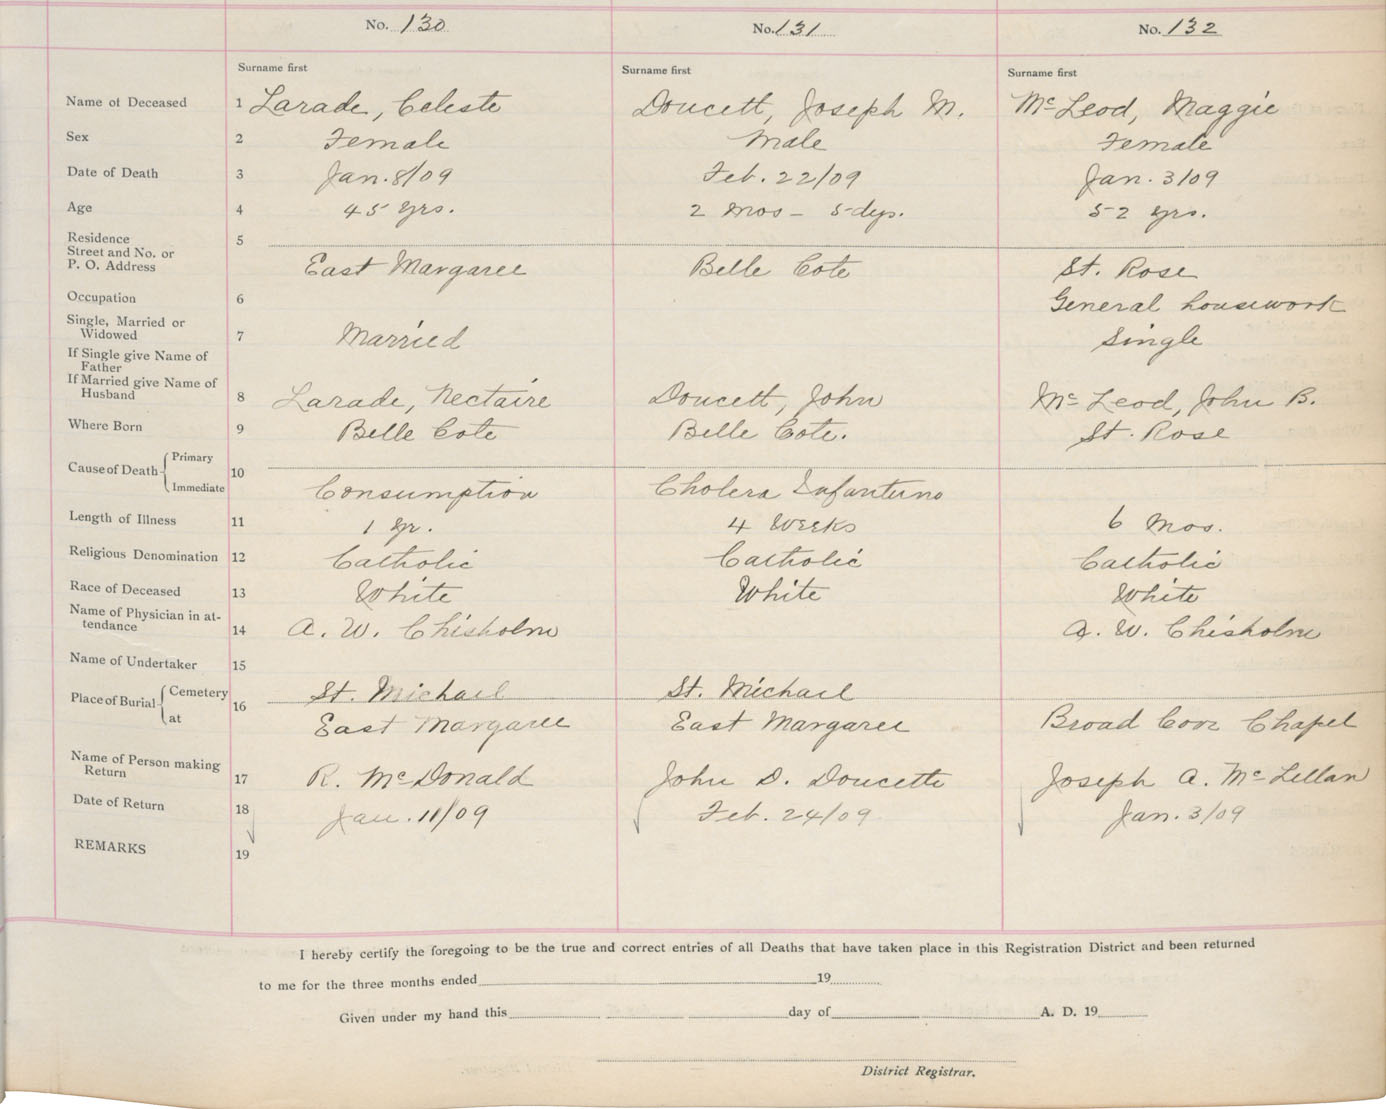 No. 130 No. 131 No. 132
Surname first Surname first Surname first
Name of Deceased 1 Larade, Celeste Doucett, Joseph M. McLeod, Maggie
Sex 2 Female Male Female
Date of Death 3 Jan. 8/09 Feb. 22/09 Jan. 3/09
Age 4 45 yrs. 2 mos - 5 dys. 52 yrs.
Residence 5
Street and No. or
P. O. Address East Margaree Belle Cote St. Rose
Occupation 6 General housework
Single, Married or
Widowed 7 Married Single
If Single give Name of
Father
If Married give Name of
Husband 8 Larade, Nectaire Doucett, John McLeod, John B.
Where Born 9 Belle Cote Belle Cote. St. Rose
Cause of Death Primary 10
Immediate Consumption Cholera Infantuno
Length of Illness 11 1 yr. 4 weeks 6 mos.
Religious Denomination 12 Catholic Catholic Catholic
Race of Deceased 13 White White White
Name of Physician in at-
tendance 14 A. W. Chisholm A. W. Chisholm
Name of Undertaker 15
Place of Burial Cemetery 16 St. Michael St. Michael
at East Margaree East Margaree Broad Cove Chapel
Name of Person making
Return 17 R. McDonald John D. Doucette Joseph A. McLellan
Date of Return 18 Jan. 11/09 Feb. 24/09 Jan. 3/09
REMARKS 19
I hereby certify the foregoing to be the true and correct entries of all Deaths that have taken place in this Registration District and been returned
to me for the three months ended 19
Given under my hand this day of A. D. 19
District Registrar.